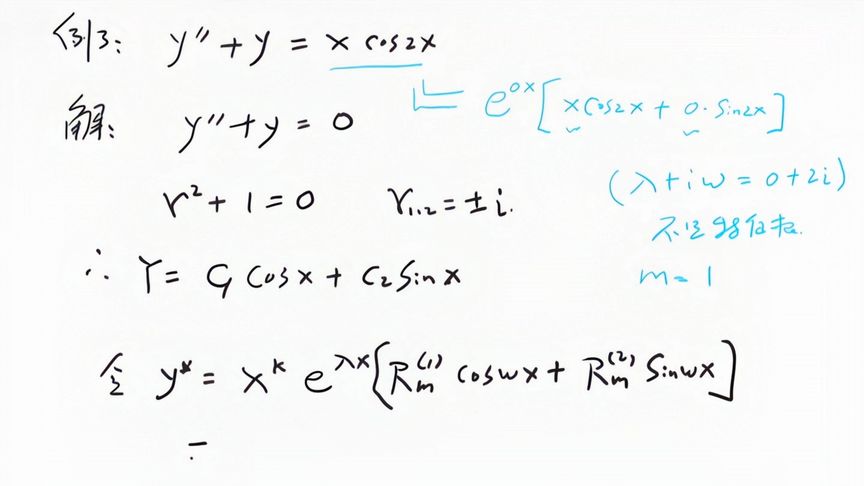 例3: y″ + y = x cos2x
e^{0x}[x cos2x + 0·sin2x]
解: y″ + y = 0
(λ+iω = 0+2i)
r² + 1 = 0 r₁,₂ = ±i.
不是特征根.
∴ Y = C₁ cosx + C₂ sinx
m = 1
令 y* = x^k e^{λx}[R_m^{(1)} cosωx + R_m^{(2)} sinωx]
=